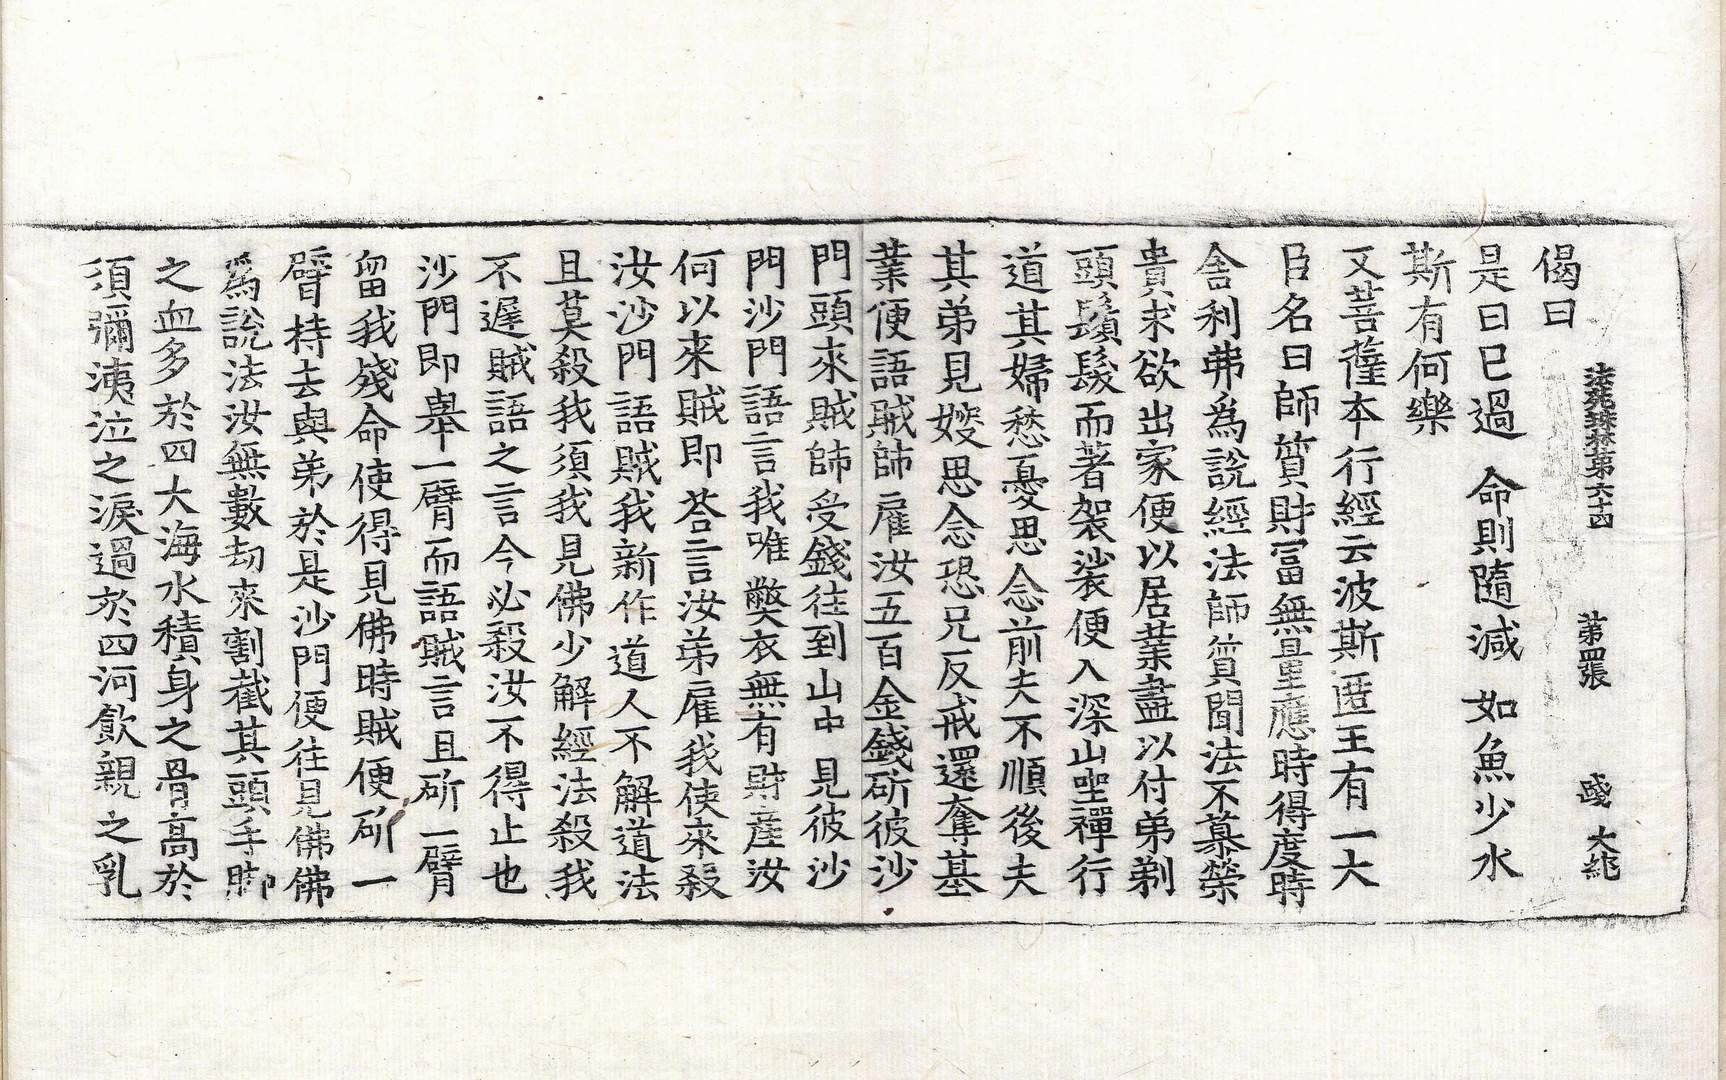 法苑珠林第六十四 第四張 踐 大
偈曰
是日已過 命則隨減 如魚少水
斯有何樂
又菩薩本行經云波斯匿王有一大
臣名曰師質財富無量應時得度時
舍利弗爲說經法師質聞法不慕榮
貴求欲出家便以居業盡以付弟剃
頭鬚髮而著袈裟便入深山坐禪行
道其婦愁憂思念前夫不順後夫
其弟見嫂思念恐兄反戒還奪基
業便語賊師雇汝五百金錢斫彼沙
門頭來賊師受錢往到山中見彼沙
門沙門語言我唯獘衣無有財產汝
何以來賊即荅言汝弟雇我使來殺
汝沙門語賊我新作道人不解道法
且莫殺我須我見佛少解經法殺我
不遲賊語之言今必殺汝不得止也
沙門即舉一臂而語賊言且斫一臂
留我殘命使得見佛時賊便斫一
臂持去與弟於是沙門便往見佛佛
爲說法汝無數劫來割截其頭手脚
之血多於四大海水積身之骨高於
須彌洟泣之淚過於四河飲親之乳